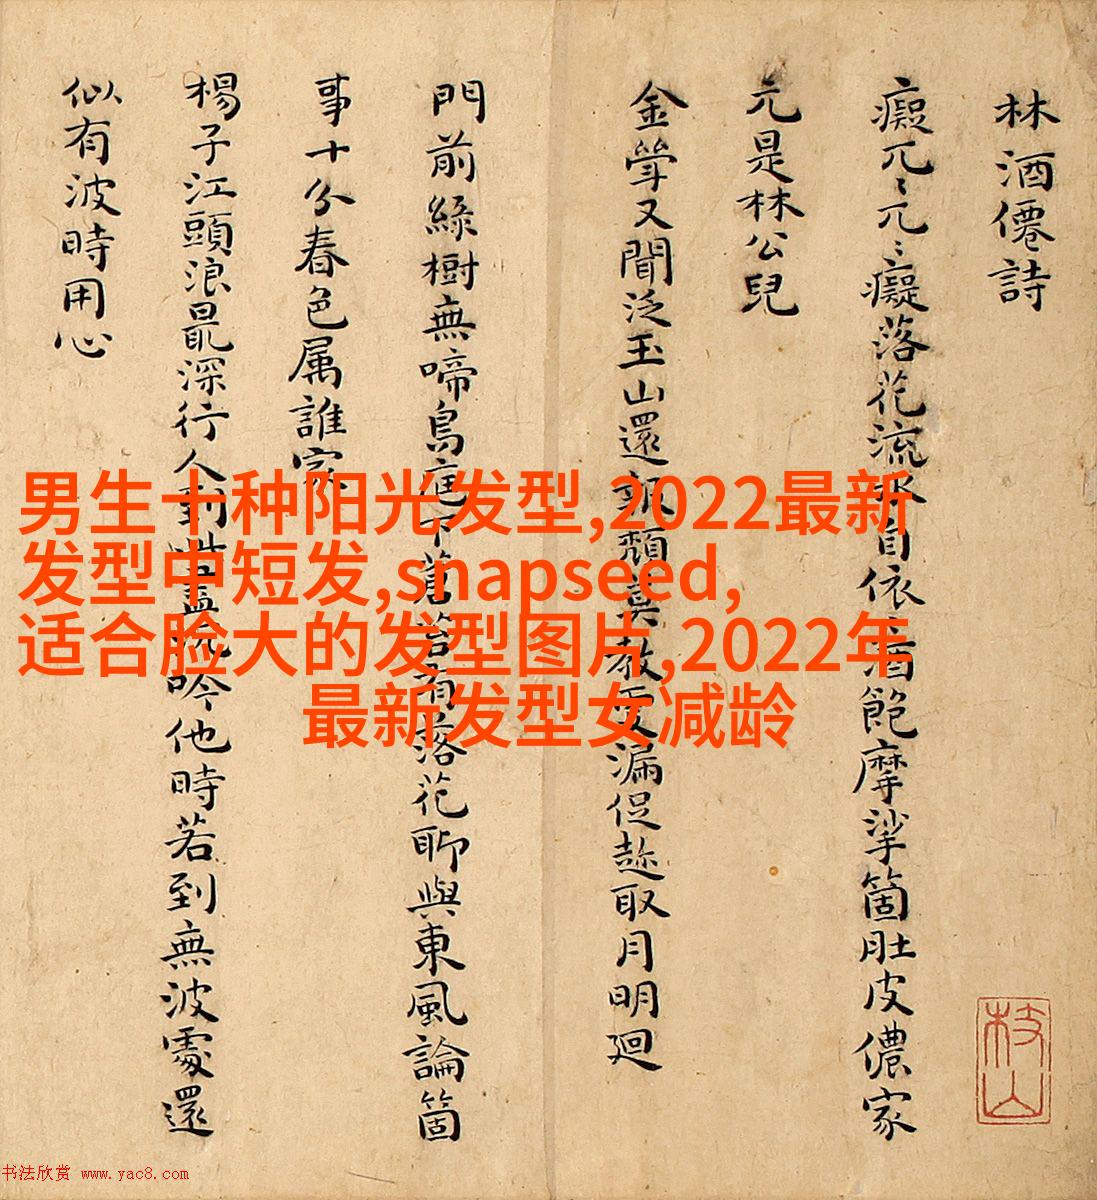 林酒僊詩
癡兀〻兀〻癡落花流水自依〻酒飽摩挲箇肚皮儂家
元是林公兒
金斝又聞泛玉山還頹莫教更漏促趂取月明廻
門前綠樹無啼鳥庭下蒼苔有落花聊與東風論箇
事十分春色属誰家
楊子江頭浪最深行人到此盡沉吟他時若到無波處還
似有波時用心
枝山
男生十种阳光发型,2022最新
发型中短发,snapseed,
适合脸大的发型图片,2022年
最新发型女减龄
书法欣赏 www.yac8.com